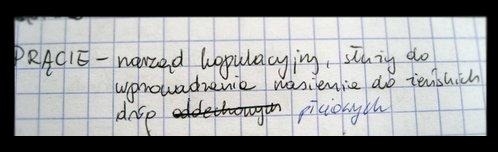 PRĄCIE – narząd kopulacyjny, służy do
wprowadzenia nasienia do żeńskich
dróg oddechowych płciowych